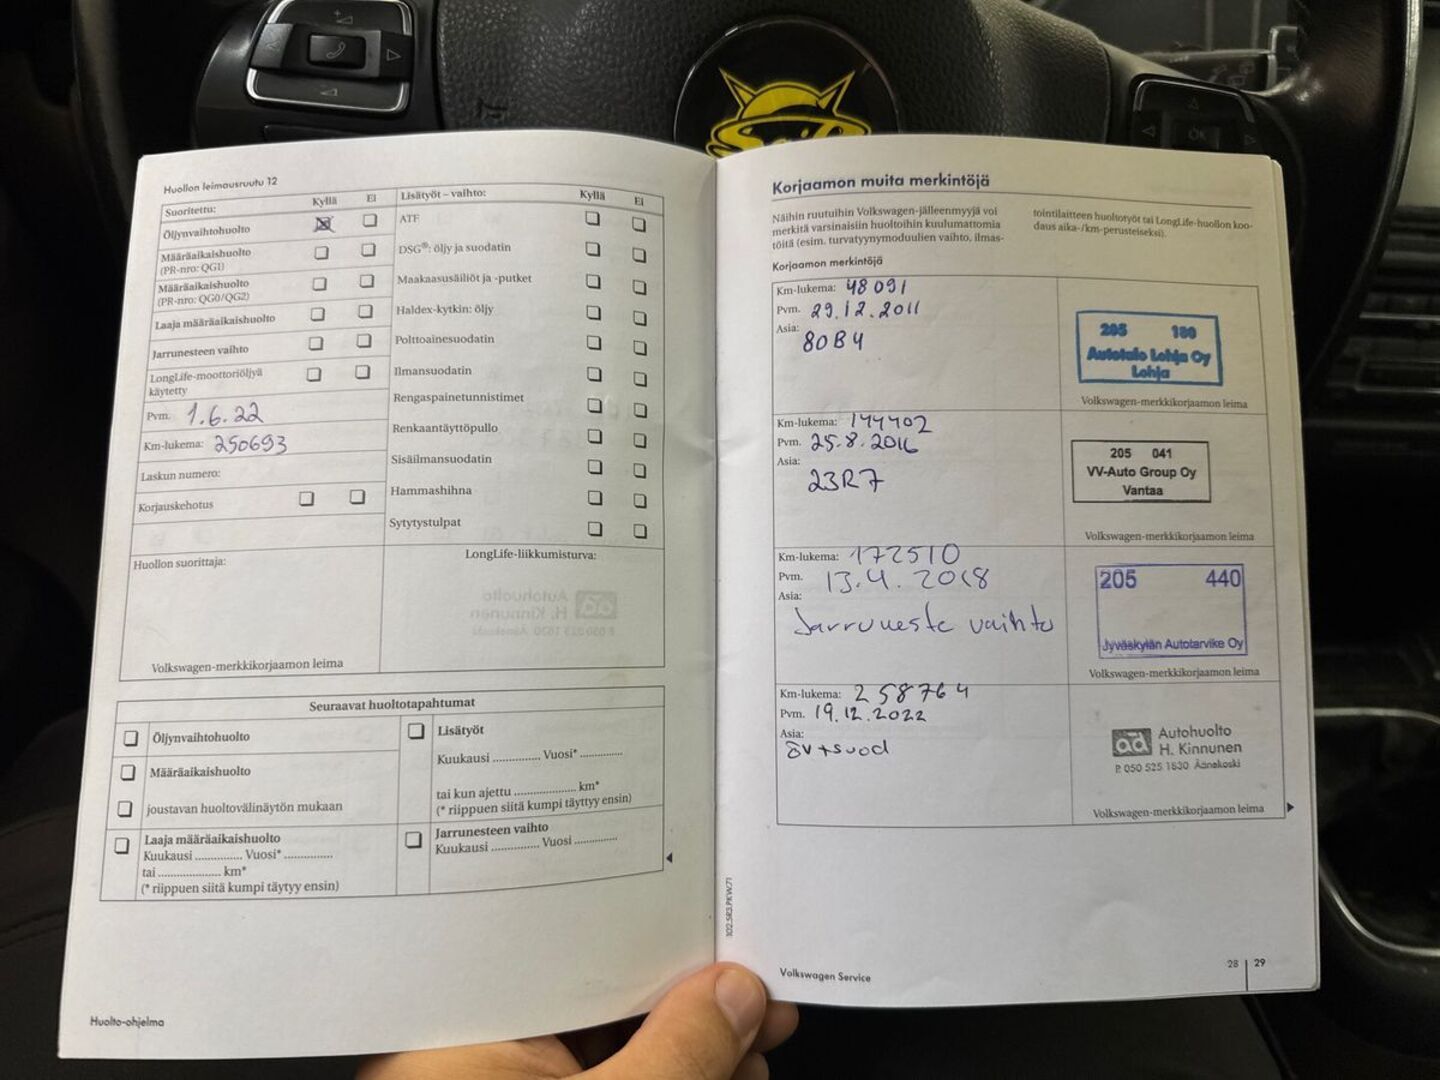 Huollon leimausruutu 12
Suoritettu: Kyllä Ei
Öljynvaihtohuolto
Määräaikaishuolto
(PR-nro: QG1)
Määräaikaishuolto
(PR-nro: QG0/QG2)
Laaja määräaikaishuolto
Jarrunesteen vaihto
LongLife-moottoriöljyä
käytetty
Pvm. 1.6.22
Km-lukema: 250693
Laskun numero:
Korjauskehotus
Huollon suorittaja:
Volkswagen-merkkikorjaamon leima
Lisätyöt – vaihto: Kyllä Ei
ATF
DSG®: öljy ja suodatin
Maakaasusäiliöt ja -putket
Haldex-kytkin: öljy
Polttoainesuodatin
Ilmansuodatin
Rengaspainetunnistimet
Renkaantäyttöpullo
Sisäilmansuodatin
Hammashihna
Sytytystulpat
LongLife-liikkumisturva:
Seuraavat huoltotapahtumat
Öljynvaihtohuolto
Määräaikaishuolto
joustavan huoltovälinäytön mukaan
Laaja määräaikaishuolto
Kuukausi ............... Vuosi* ...............
tai .................... km*
(* riippuen siitä kumpi täytyy ensin)
Lisätyöt
Kuukausi ............... Vuosi* ..............
tai kun ajettu .................... km*
(* riippuen siitä kumpi täyttyy ensin)
Jarrunesteen vaihto
Kuukausi ............... Vuosi ..............
Huolto-ohjelma
Korjaamon muita merkintöjä
Näihin ruutuihin Volkswagen-jälleenmyyjä voi
merkitä varsinaisiin huoltoihin kuulumattomia
töitä (esim. turvatyynymoduulien vaihto, ilmas-
tointilaitteen huoltotyöt tai LongLife-huollon koo-
daus aika-/km-perusteiseksi).
Korjaamon merkintöjä
Km-lukema: 48091
Pvm. 29.12.2011
Asia:
80B4
205 180
Autotalo Lohja Oy
Lohja
Volkswagen-merkkikorjaamon leima
Km-lukema: 144402
Pvm. 25.8.2016
Asia:
23R7
205 041
VV-Auto Group Oy
Vantaa
Volkswagen-merkkikorjaamon leima
Km-lukema: 172510
Pvm. 13.4.2018
Asia:
Jarruneste vaihto
205 440
Jyväskylän Autotarvike Oy
Volkswagen-merkkikorjaamon leima
Km-lukema: 258764
Pvm. 19.12.2022
Asia:
öv+suod
ad Autohuolto
H. Kinnunen
P. 050 525 1830 Äänekoski
Volkswagen-merkkikorjaamon leima
102.5R3.PKW.71
Volkswagen Service
28 29
OK